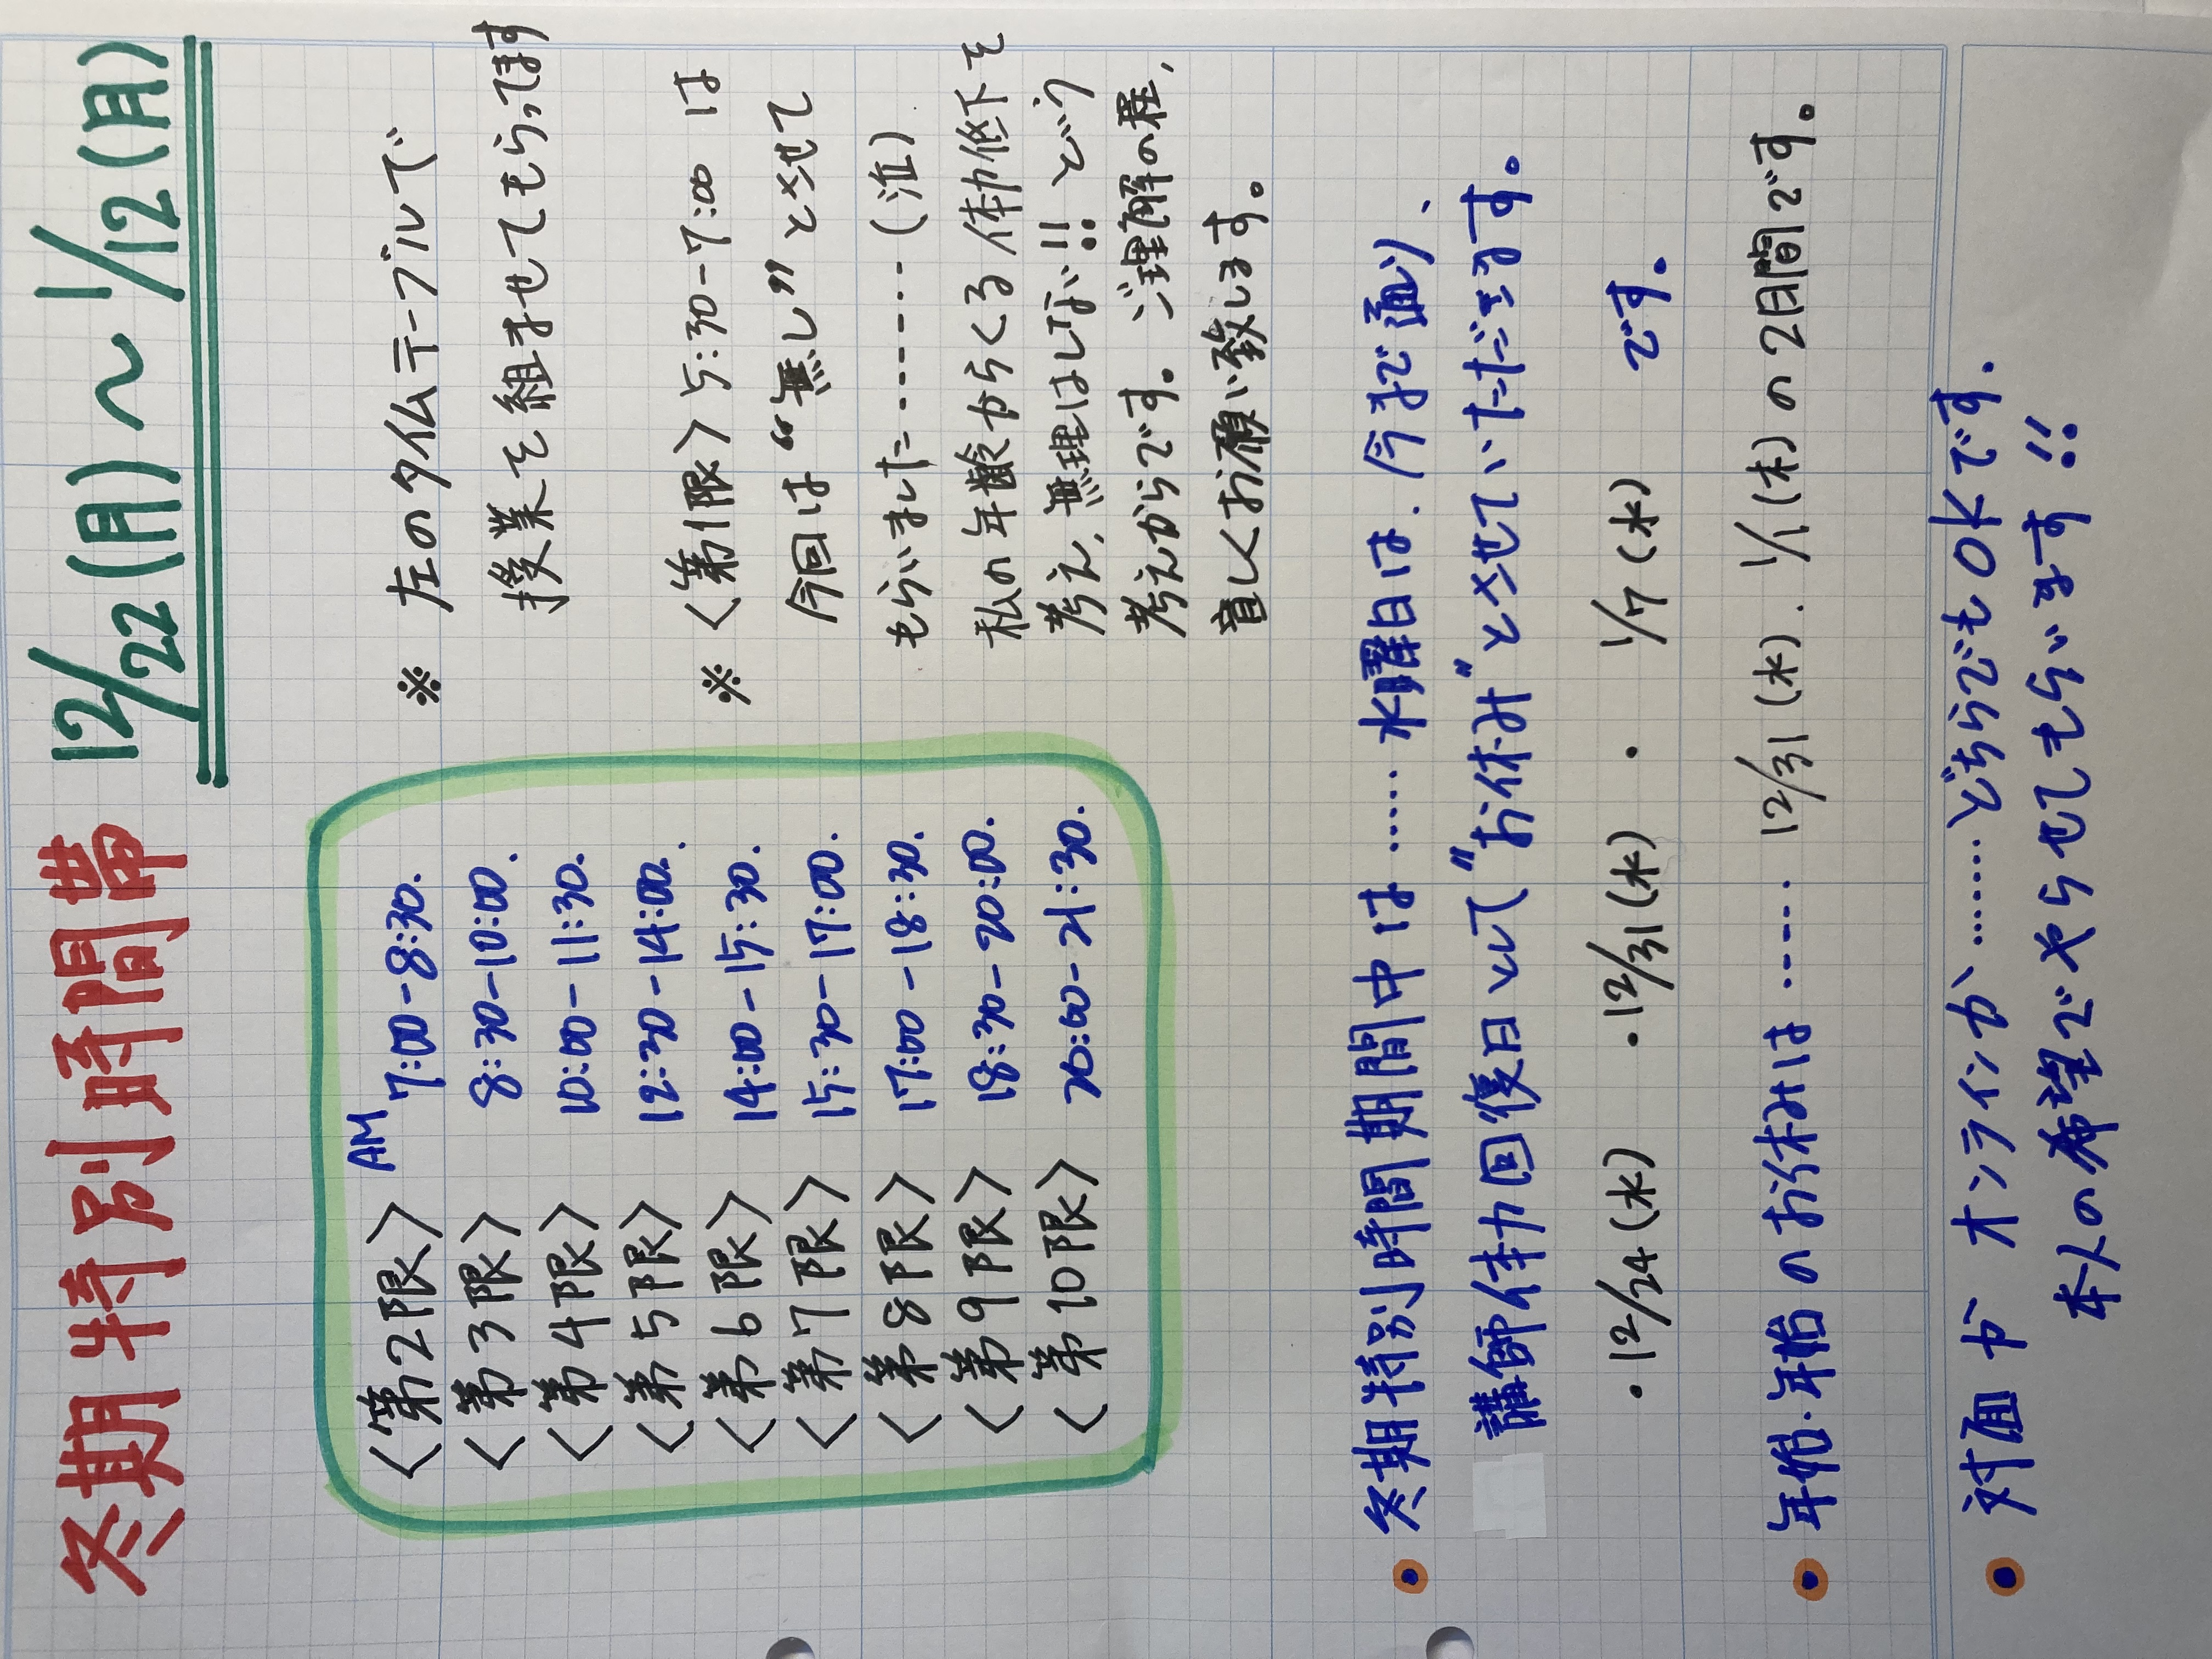 冬期特別時間帯 12/22(月)〜1/12(月)
※ 左のタイムテーブルで
授業を組ませてもらってます
AM
<第2限> 7:00-8:30.
<第3限> 8:30-10:00.
<第4限> 10:00-11:30.
<第5限> 12:30-14:00.
<第6限> 14:00-15:30.
<第7限> 15:30-17:00.
<第8限> 17:00-18:30.
<第9限> 18:30-20:00.
<第10限> 20:00-21:30.
※ <第1限> 5:30-7:00 は
今回は“無し”とさせて
もらいました……(泣)
私の年齢からくる体力低下を
考え、無理はしない!! という
考えからです。ご理解の程、
宜しくお願い致します。
• 冬期特別時間期間中は……水曜日は、今まで通り、
講師体力回復日として"お休み"とさせていただきます。
・12/24(水) ・12/31(水) ・1/7(水) です。
• 年末・年始のお休みは…… 12/31(水)、1/1(木)の2日間です。
• 対面か オンラインか……どちらでもOKです。
本人の希望でやらせてもらいます!!